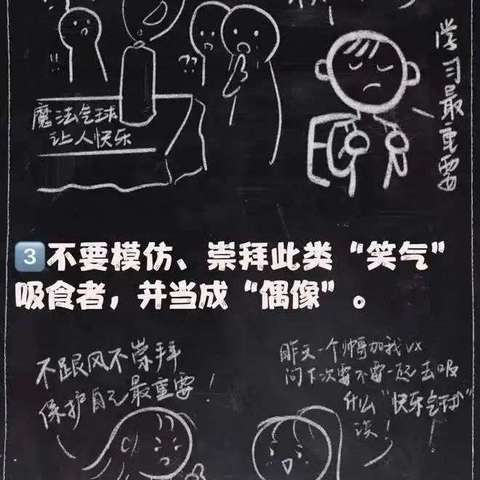 ?!
??
魔法气球
让人快乐
学习最重要
3不要模仿、崇拜此类“笑气”
吸食者，并当成“偶像”。
不跟风不崇拜
保护自己最重要！
昨天一个帅哥加我vx
问下次要不要一起去吸
什么“快乐气球”
诶！